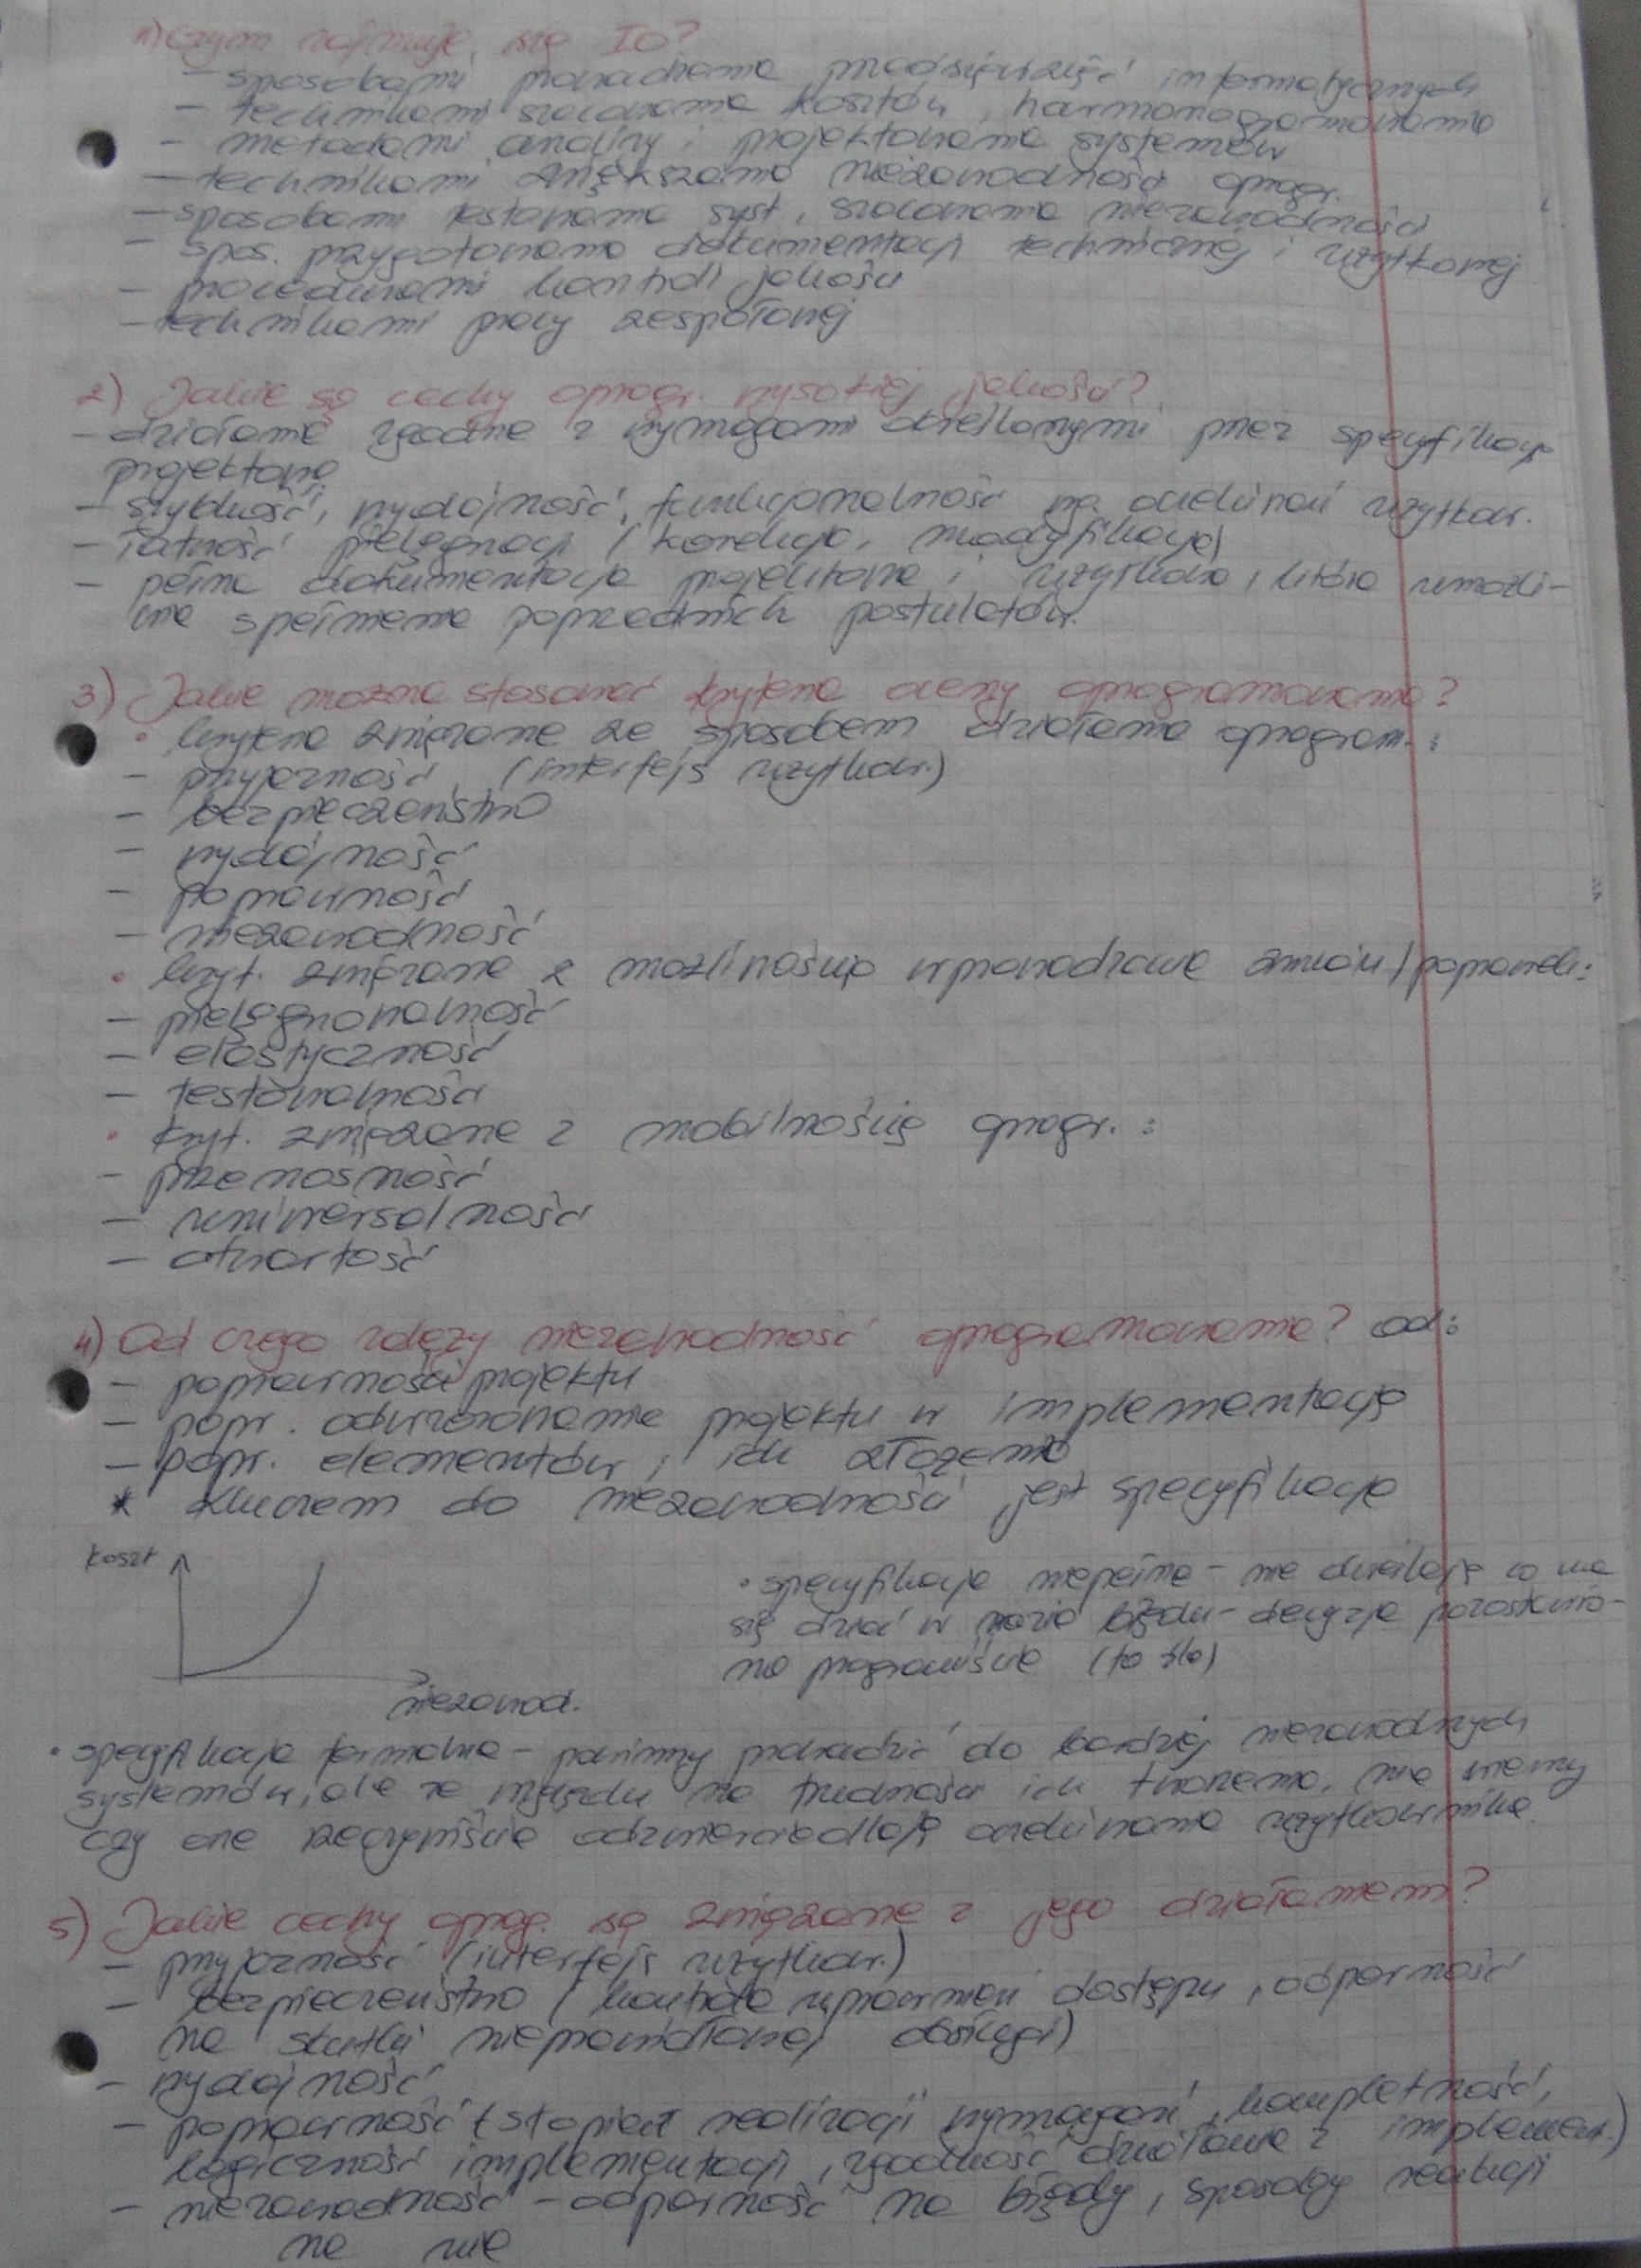 1) Czym zajmuje się IO?
- sposobami prowadzenia przedsięwzięć informatycznych
- technikami szacowania kosztów, harmonogramowania
- metodami analizy i projektowania systemów
- technikami zwiększania niezawodności oprogr.
- sposobami testowania syst, szacowania niezawodności
- spos. przygotowania dokumentacji technicznej i użytkowej
- procedurami kontroli jakości
- technikami pracy zespołowej
2) Jakie są cechy oprogr. wysokiej jakości?
- działanie zgodne z wymogami określonymi przez specyfikację
projektową
- szybkość, wydajność, funkcjonalność wg. oczekiwań użytkow.
- łatwość pielęgnacji (korekcja, modyfikacja)
- pełna dokumentacja projektowa i użytkowa, która umożli-
wia spełnienie poprzednich postulatów.
3) Jakie można stosować kryteria oceny oprogramowania?
• kryteria związane ze sposobem działania oprogram.:
- przyjazność (interfejs użytkow.)
- bezpieczeństwo
- wydajność
- poprawność
- niezawodność
• kryt. związane z możliwością wprowadzania zmian/poprawek:
- pielęgnowalność
- elastyczność
- testowalność
• kryt. związane z mobilnością oprogr.:
- przenośność
- uniwersalność
- otwartość
4) Od czego zależy niezawodność oprogramowania? od:
- poprawności projektu
- popr. odwzorowania projektu w implementację
- popr. elementów i ich złożenia
* kluczem do niezawodności jest specyfikacja
koszt
niezawod.
• specyfikacja niepełna - nie określają co ma
się dziać w razie błędu - decyzja pozostawio-
na programiście (to źle)
• specyfikacje formalne - powinny prowadzić do bardziej niezawodnych
systemów, ale ze względu na trudności ich tworzenia, nie wiemy
czy one rzeczywiście odzwierciedlają oczekiwania użytkownika.
5) Jakie cechy oprog. są związane z jego działaniem?
- przyjazność (interfejs użytkow.)
- bezpieczeństwo (kontrola uprawnień dostępu, odporność
na skutki nieprawidłowej obsługi)
- wydajność
- poprawność (stopień realizacji wymagań, kompletność,
logiczność implementacji, zgodność działania z implemen.)
- niezawodność - odporność na błędy, sposoby reakcji
na nie